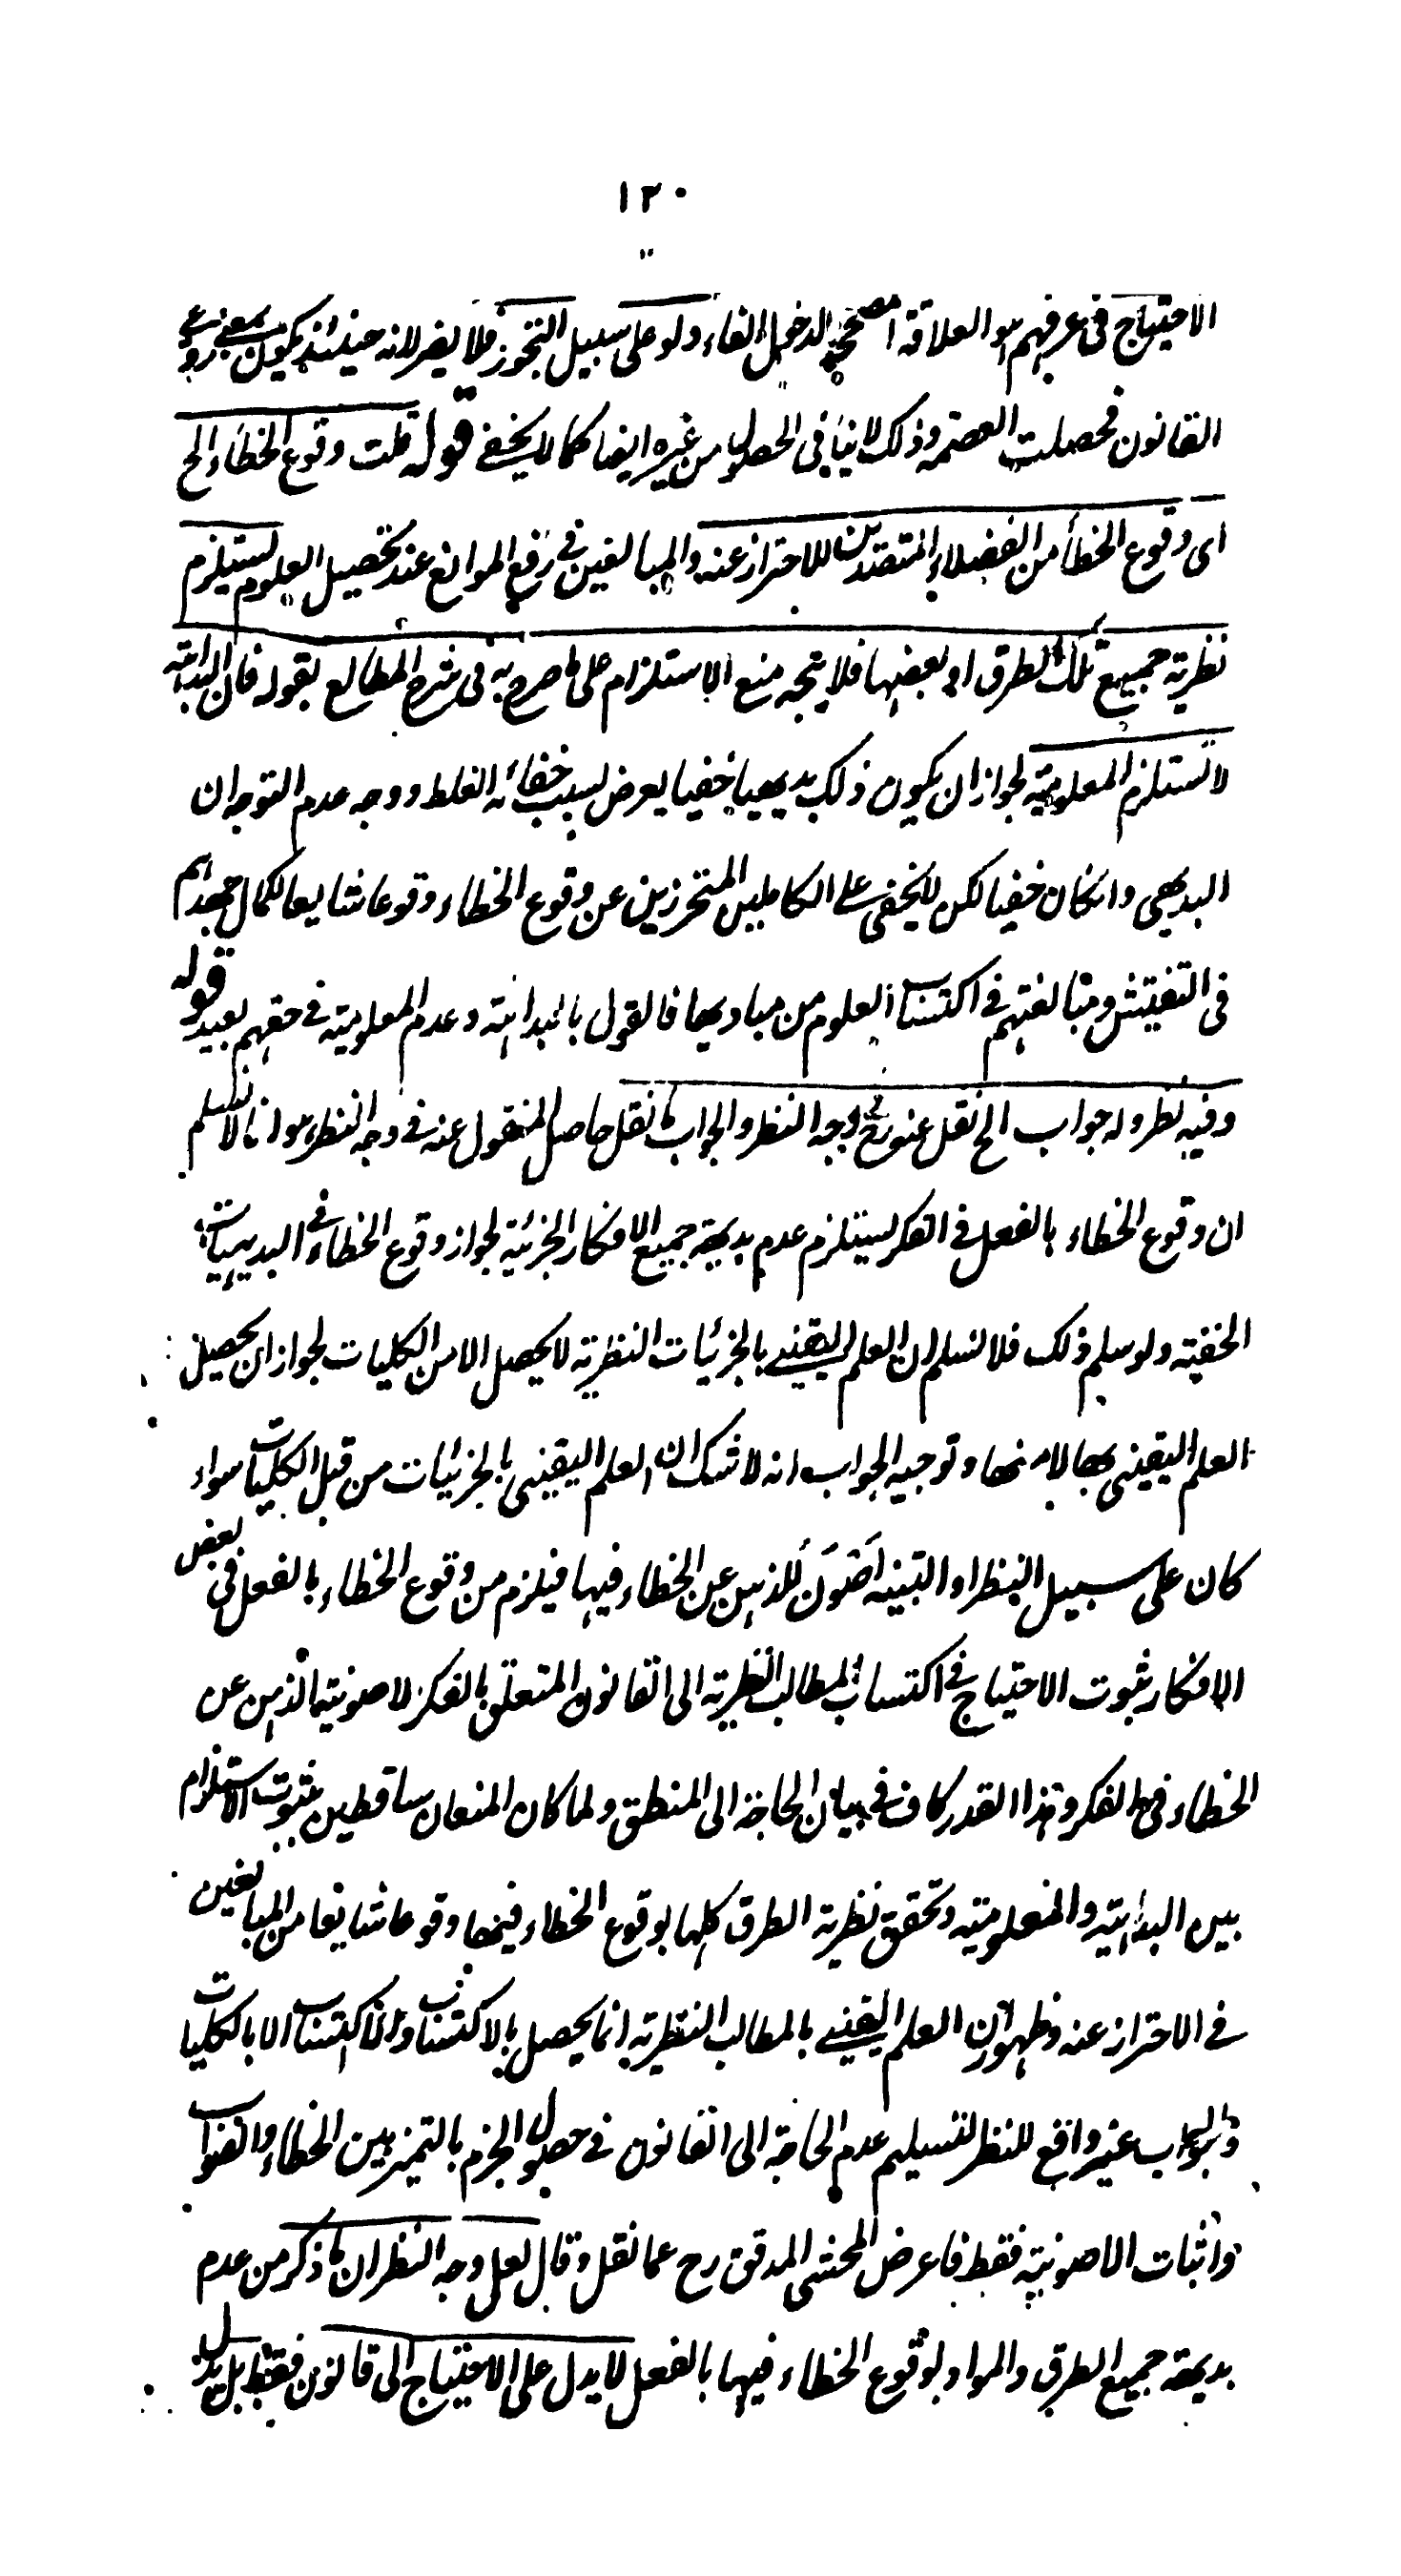 ١٢٠
الاحتياج فى عرفهم هو العلاقة المصححة لدخول الفاء ولو على سبيل التجوز فلا يضر لانه حينئذ يكون بمعنى روعى
القانون فحصلت العصمة وذلك لا ينافى الحصول من غيره ايضا كما لا يخفى قوله قلت وقوع الخطاء الخ
اى وقوع الخطأ من الفضلاء المتقصدين للاحتراز عنه والمبالغين فى رفع الموانع عند تحصيل العلوم يستلزم
نظرية جميع تلك الطرق او بعضها فلا يتجه منع الاستلزام على ما صرح به فى شرح المطالع بقوله فان البداهة
لا تستلزم المعلومية لجواز ان يكون ذلك بديهيا خفيا يعرض بسبب خفائه الغلط ووجه عدم التوجه ان
البديهى وانكان خفيا لكن لا يخفى على الكاملين المتحرزين عن وقوع الخطاء وقوعا شايعا لكمال جهدهم
فى التفتيش ومبالغتهم فى اكتساب العلوم من مباديها فالقول بالبداهة وعدم المعلومية فى حقهم بعيد قوله
وفيه نظر وله جواب الخ نقل عنه فى وجه النظر والجواب ما نقل حاصل المنقول عنه فى وجه النظر هو انا لا نسلم
ان وقوع الخطاء بالفعل فى الفكر يستلزم عدم بديهة جميع الافكار الجزئية لجواز وقوع الخطاء فى البديهيات
الخفية ولو سلم ذلك فلا نسلم ان العلم اليقينى بالجزئيات النظرية لا يحصل الا من الكليات لجواز ان يحصل
العلم اليقينى بها لا منها وتوجيه الجواب انه لا شك ان العلم اليقينى بالجزئيات من قبل الكليات سواء
كان على سبيل النظر او التنبيه اصون للذهن عن الخطاء فيها فيلزم من وقوع الخطاء بالفعل فى بعض
الافكار ثبوت الاحتياج فى اكتساب المطالب النظرية الى القانون المتعلق بالفكر لاصونية الذهن عن
الخطاء فى الفكر وهذا القدر كاف فى بيان الحاجة الى المنطق ولما كان المنعان ساقطين بثبوت الاستلزام
بين البداهة والمعلومية وتحقق نظرية الطرق كلها بوقوع الخطاء فيها وقوعا شايعا من المبالغين
فى الاحتراز عنه وظهور ان العلم اليقينى بالمطالب النظرية انما يحصل بالاكتساب ولا اكتساب الا بالكليات
والجواب غير واقع للنظر لتسليم عدم الحاجة الى القانون فى حصول الجزم بالتميز بين الخطاء والصواب
واثبات الاصونية فقط فاعرض المحشى المدقق رح عما نقل وقال لعل وجه النظر ان ما ذكر من عدم
بديهة جميع الطرق والمواد لوقوع الخطاء فيها بالفعل لا يدل على الاحتياج الى قانون فقط بل يدل